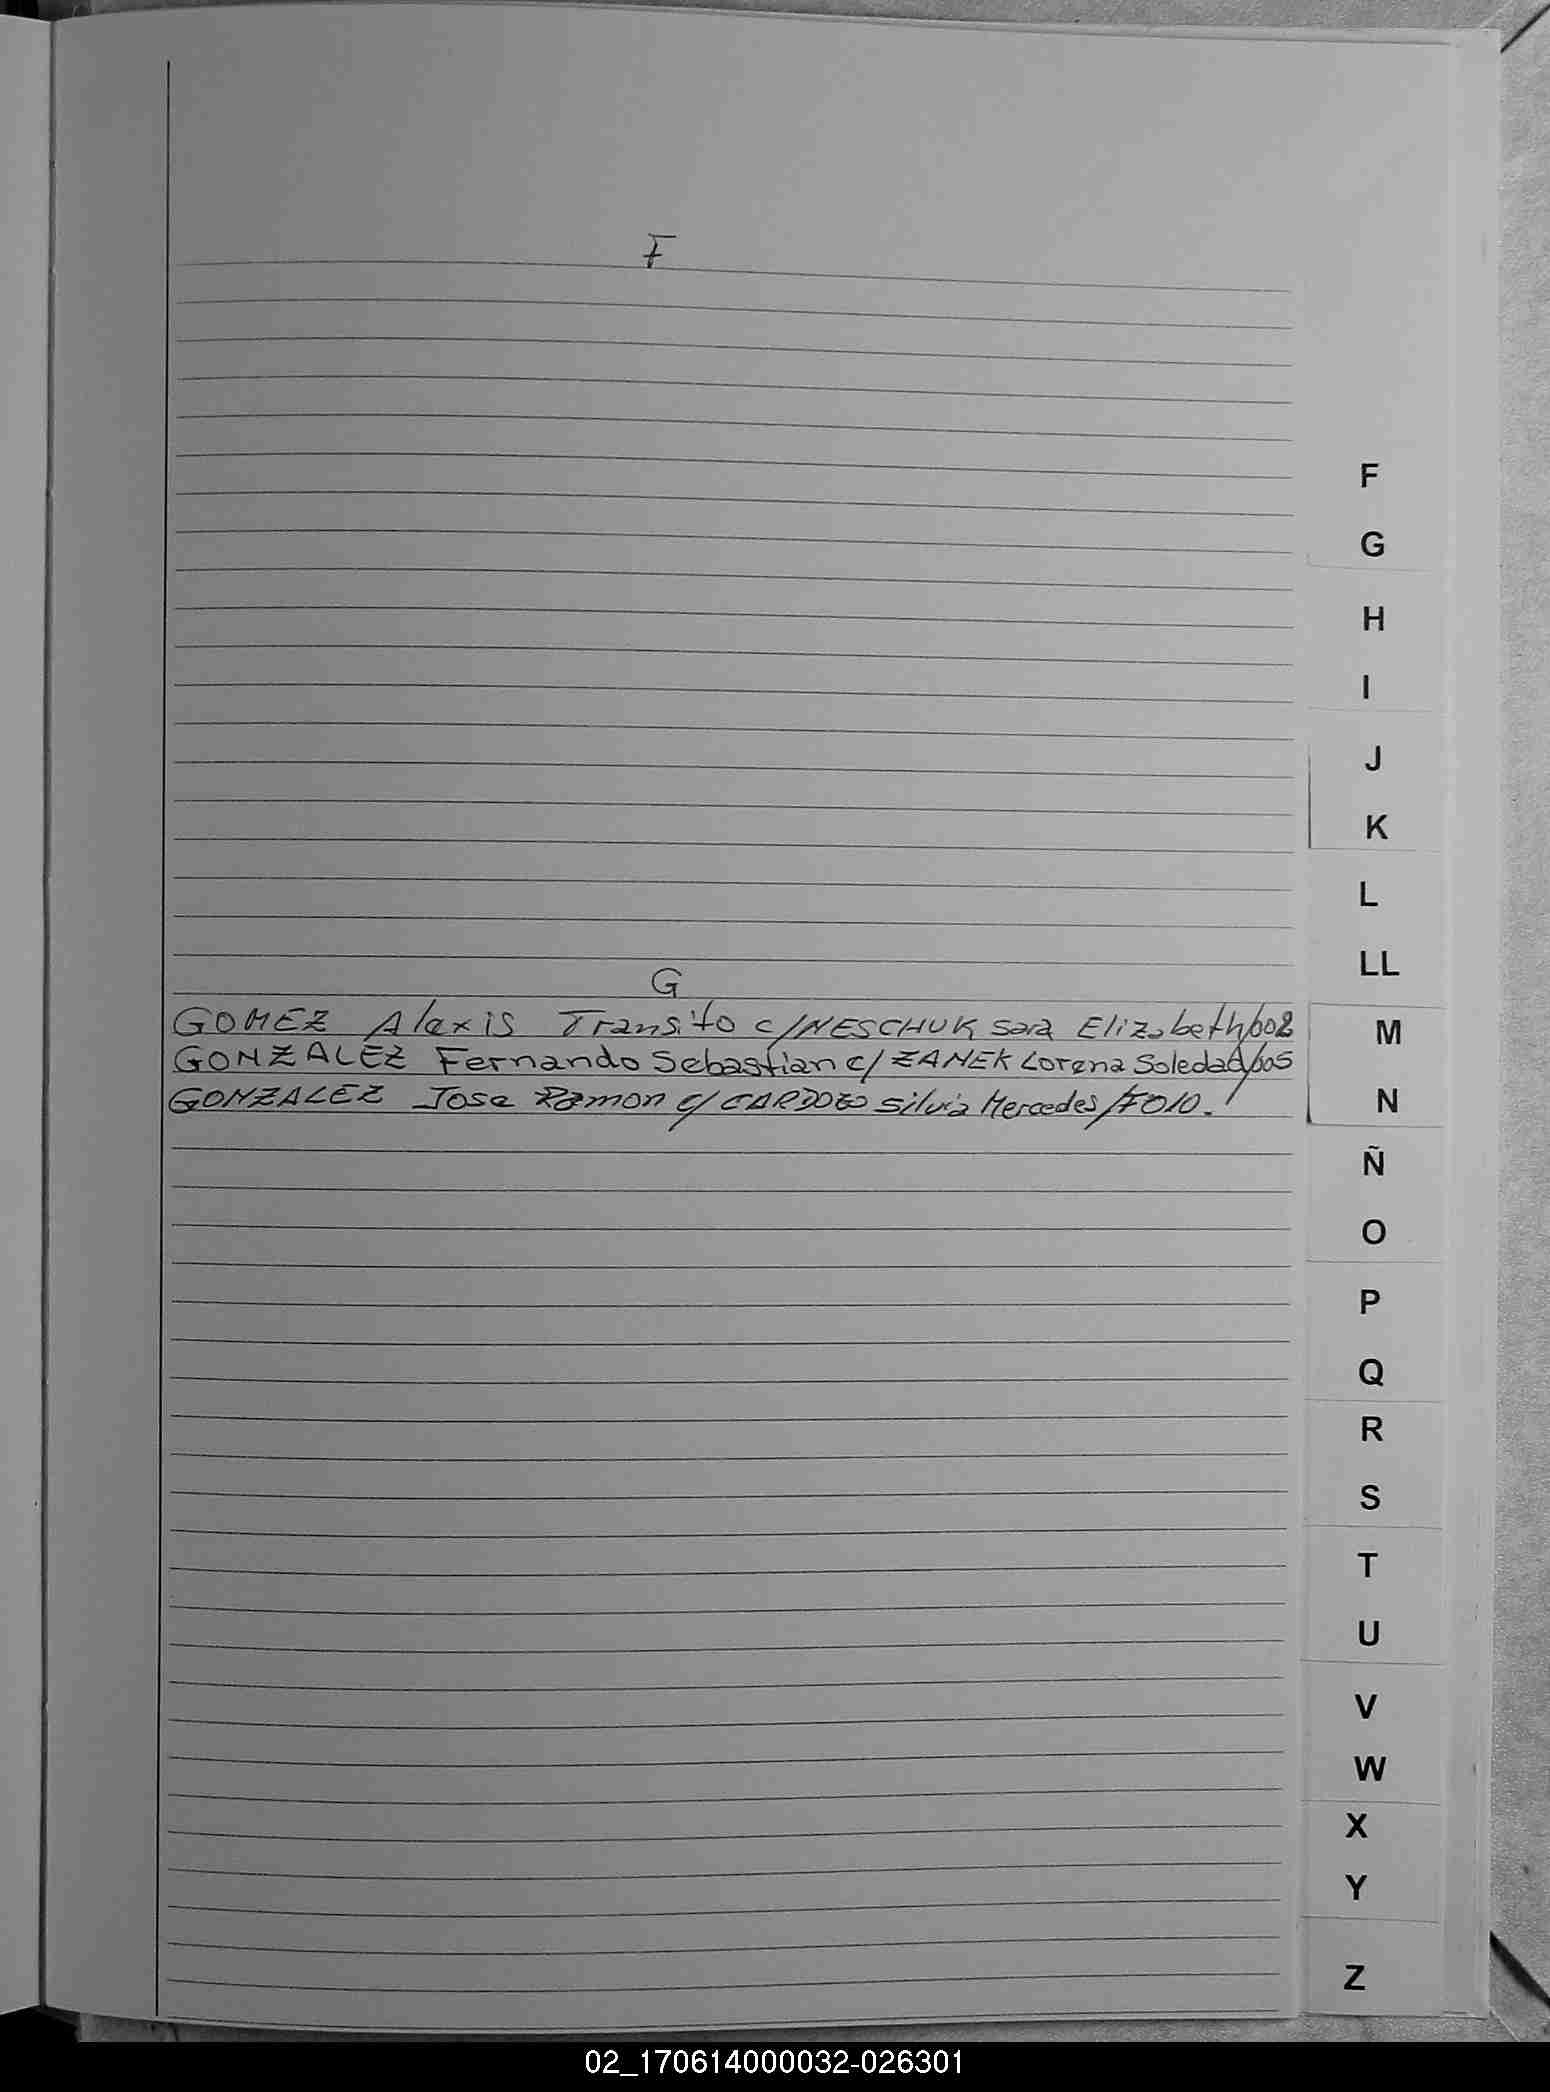 F
F
G
H
I
J
K
L
LL
G
GOMEZ Alexis Transito c/NESCHUK Sara Elizabeth/002
M
GONZALEZ Fernando Sebastian c/ZANEK Lorena Soledad/005
GONZALEZ Jose Ramon c/ CARDOZO Silvia Mercedes/F010.
N
Ñ
O
P
Q
R
S
T
U
V
W
X
Y
Z
02_170614000032-026301